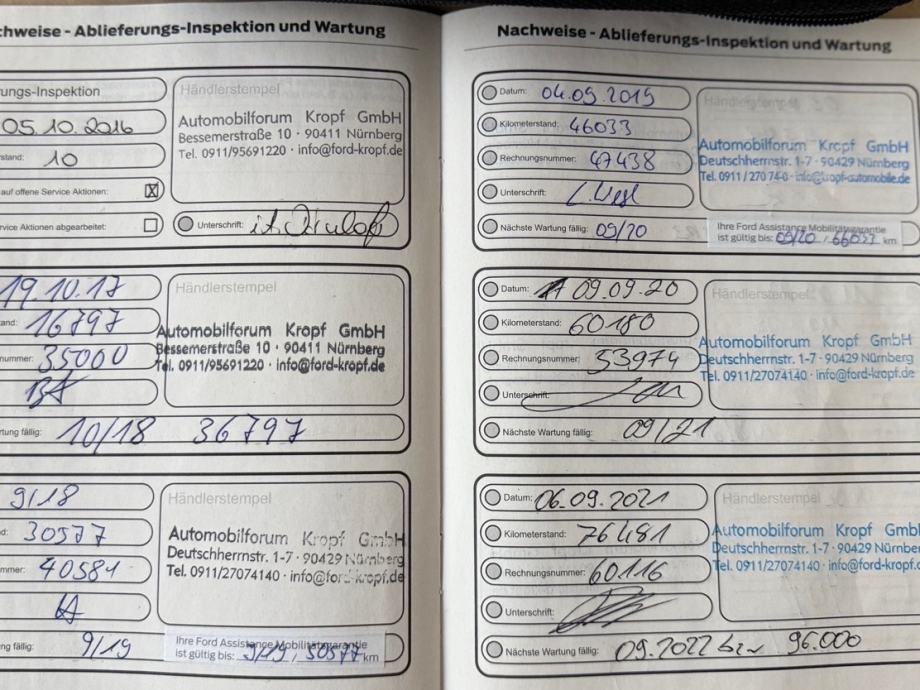 chweise - Ablieferungs-Inspektion und Wartung
ungs-Inspektion
05.10.2016
stand: 10
auf offene Service Aktionen: X
rvice Aktionen abgearbeitet:
Händlerstempel
Automobilforum Kropf GmbH
Bessemerstraße 10 · 90411 Nürnberg
Tel. 0911/95691220 · info@ford-kropf.de
Unterschrift:
19.10.17
and: 16797
nummer: 35000
Händlerstempel
Automobilforum Kropf GmbH
Bessemerstraße 10 · 90411 Nürnberg
Tel. 0911/95691220 · info@ford-kropf.de
tung fällig: 10/18 36797
9/18
d: 30577
mmer: 40581
Händlerstempel
Automobilforum Kropf GmbH
Deutschherrnstr. 1-7 · 90429 Nürnberg
Tel. 0911/27074140 · info@ford-kropf.de
ng fällig: 9/19
Ihre Ford Assistance Mobilitätsgarantie
ist gültig bis: 9/19, 50577 km
Nachweise - Ablieferungs-Inspektion und Wartung
Datum: 04.09.2019
Kilometerstand: 46033
Rechnungsnummer: 47438
Unterschrift:
Nächste Wartung fällig: 09/20
Händlerstempel
Automobilforum Kropf GmbH
Deutschherrnstr. 1-7 · 90429 Nürnberg
Tel. 0911 / 270 74-0 · info@kropf-automobile.de
Ihre Ford Assistance Mobilitätsgarantie
ist gültig bis: 09/20 / 66033 km
Datum: 09.09.20
Kilometerstand: 60180
Rechnungsnummer: 53974
Unterschrift:
Nächste Wartung fällig: 09/21
Händlerstempel
Automobilforum Kropf GmbH
Deutschherrnstr. 1-7 · 90429 Nürnberg
Tel. 0911/27074140 · info@ford-kropf.de
Datum: 06.09.2021
Kilometerstand: 76481
Rechnungsnummer: 60116
Unterschrift:
Nächste Wartung fällig: 09.2022 bzw 96.000
Händlerstempel
Automobilforum Kropf GmbH
Deutschherrnstr. 1-7 · 90429 Nürnbe
Tel. 0911/27074140 · info@ford-kropf.d